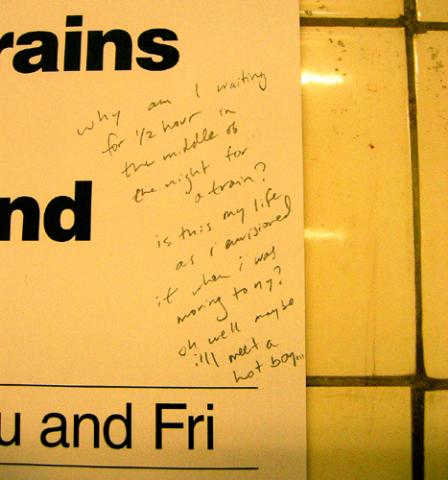 rains
why am I waiting
for 1/2 hour in
the middle of
the night for
a train?
nd
is this my life
as i envisioned
it when i was
moving to ny?
oh well maybe
i'll meet a
hot boy...
u and Fri